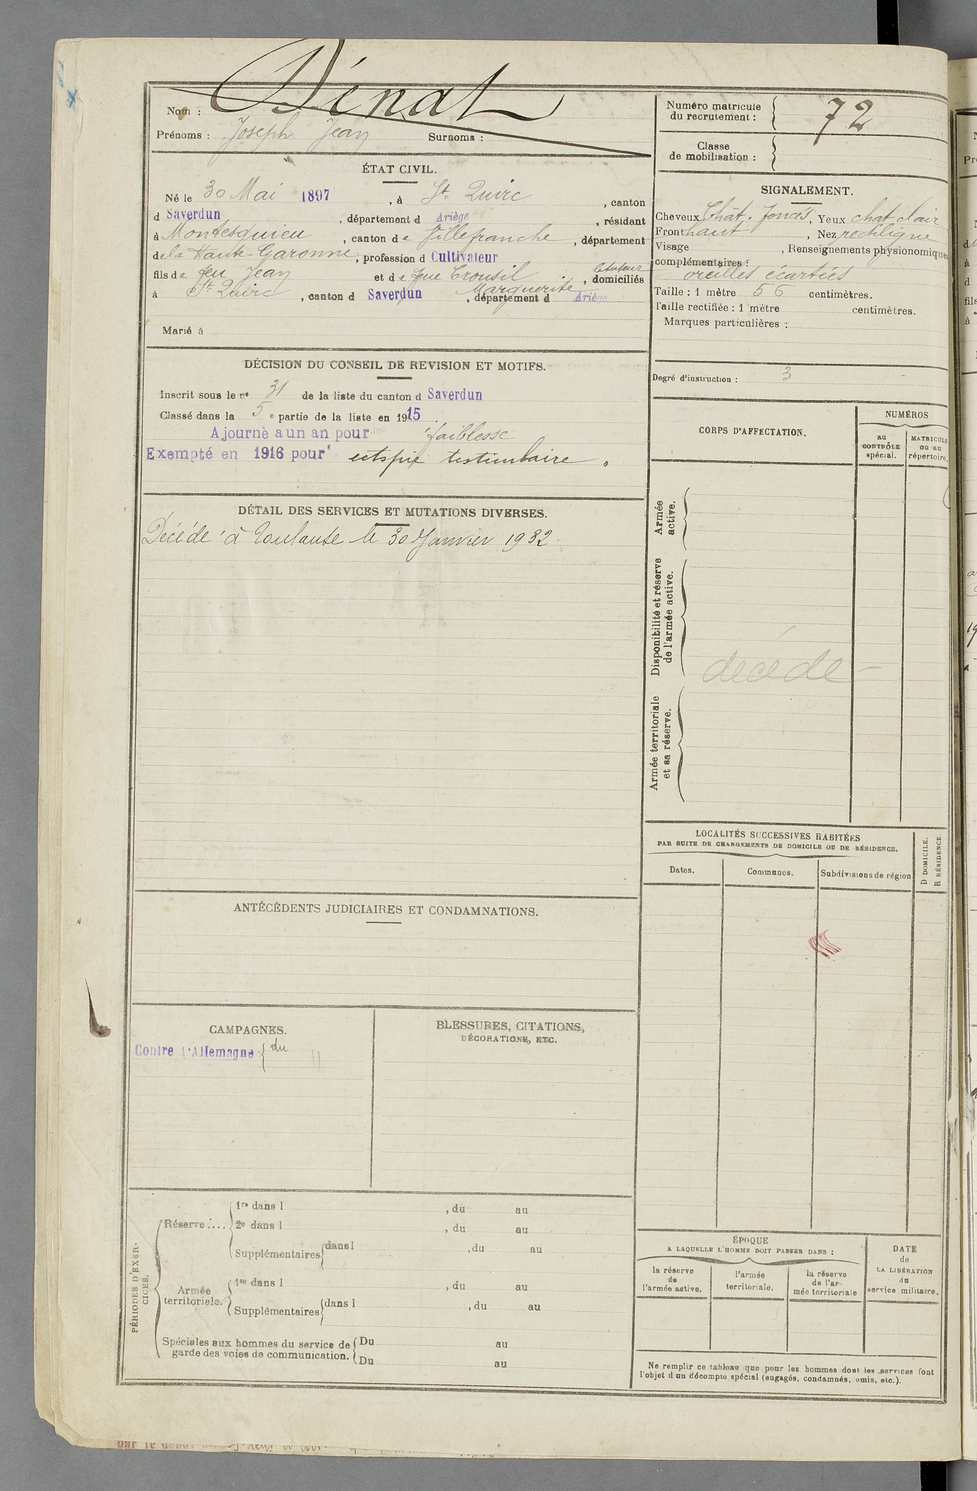 Nom : Dénat
Prénoms : Joseph Jean Surnoms :
Numéro matricule du recrutement : 72
Classe de mobilisation :
ÉTAT CIVIL.
Né le 30 Mai 1897, à St Quirc, canton
d Saverdun, département d Ariège, résidant
à Montesquieu, canton de Villefranche, département
de la Haute-Garonne, profession d Cultivateur
fils de feu Jean et de feue Crousil Marguerite, domiciliés
à St Quirc, canton d Saverdun, département d Ariège
Marié à
SIGNALEMENT.
Cheveux Chât. foncés, Yeux chat clair
Front haut, Nez rectiligne
Visage , Renseignements physionomiques
complémentaires :
oreilles écartées
Taille : 1 mètre 56 centimètres.
Taille rectifiée : 1 mètre centimètres.
Marques particulières :
Degré d'instruction : 3
DÉCISION DU CONSEIL DE REVISION ET MOTIFS.
Inscrit sous le n° 31 de la liste du canton d Saverdun
Classé dans la 5 e partie de la liste en 1915
Ajourné a un an pour faiblesse
Exempté en 1916 pour
DÉTAIL DES SERVICES ET MUTATIONS DIVERSES.
Décédé à Toulouse le 30 Janvier 1932.
CORPS D'AFFECTATION.
NUMÉROS
au CONTRÔLE spécial.
MATRICULE ou au répertoire.
Armée active.
Disponibilité et réserve de l'armée active.
décédé
Armée territoriale et sa réserve.
LOCALITÉS SUCCESSIVES HABITÉES
PAR SUITE DE CHANGEMENTS DE DOMICILE OU DE RÉSIDENCE.
Dates.
Communes.
Subdivisions de région
D DOMICILE.
R RÉSIDENCE.
ANTÉCÉDENTS JUDICIAIRES ET CONDAMNATIONS.
CAMPAGNES.
Contre l'Allemagne du
BLESSURES, CITATIONS,
DÉCORATIONS, ETC.
PÉRIODES D'EXERCICES.
Réserve :
1re dans l , du au
2e dans l , du au
Supplémentaires dans l , du au
Armée territoriale.
1re dans l , du au
Supplémentaires dans l , du au
Spéciales aux hommes du service de garde des voies de communication.
Du au
Du au
ÉPOQUE
A LAQUELLE L'HOMME DOIT PASSER DANS :
la réserve de l'armée active.
l'armée territoriale.
la réserve de l'armée territoriale
DATE de LA LIBÉRATION du service militaire.
Ne remplir ce tableau que pour les hommes dont les services font
l'objet d'un décompte spécial (engagés, condamnés, omis, etc.).